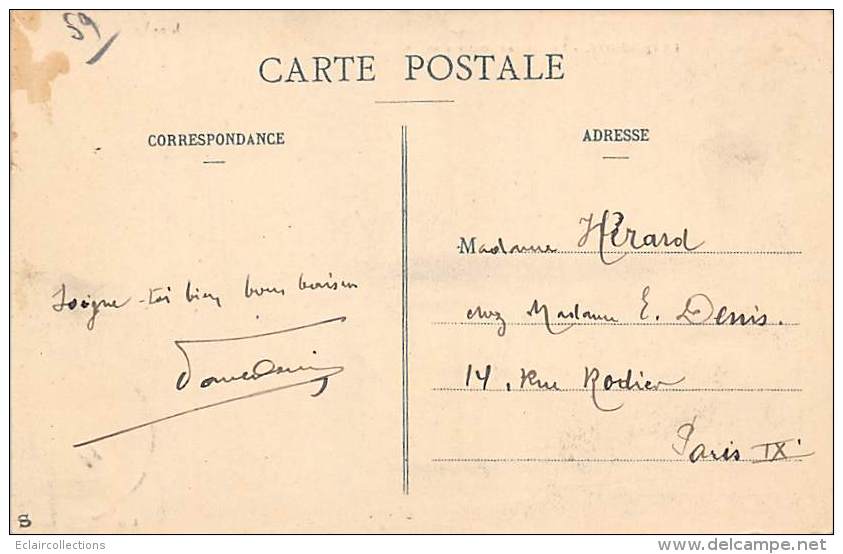 59
CARTE POSTALE
CORRESPONDANCE
ADRESSE
Madame Hérard
chez Madame E. Denis.
14, Rue Rodier
Paris IX
Soigne-toi bien bons baisers
S
Eclaircollections
delcampe.net